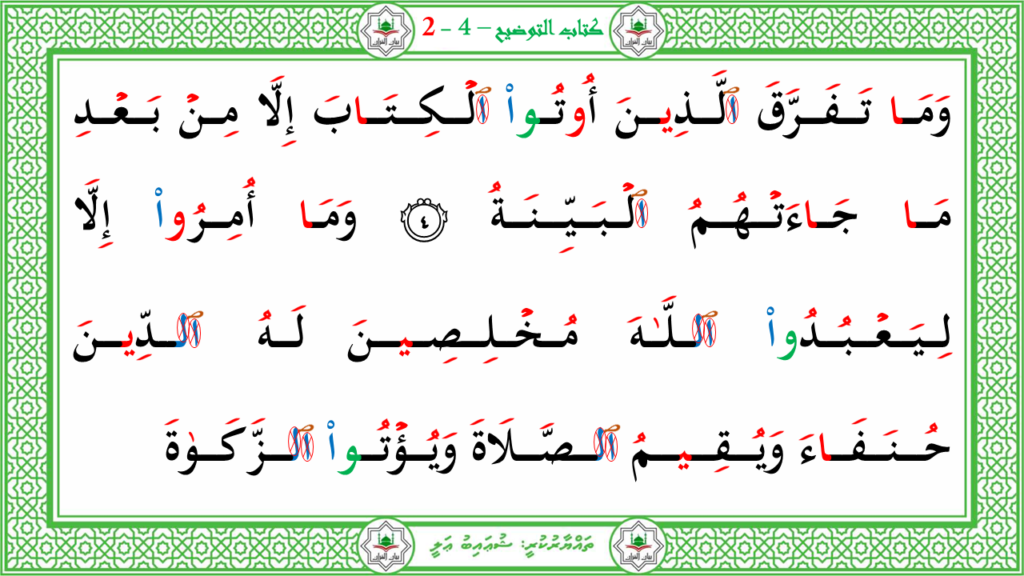 كتاب التوضيح – 4 - 2
وَمَا تَفَرَّقَ ٱلَّذِينَ أُوتُوا۟ ٱلْكِتَابَ إِلَّا مِنْ بَعْدِ
مَا جَاءَتْهُمُ ٱلْبَيِّنَةُ ٤ وَمَا أُمِرُوا۟ إِلَّا
لِيَعْبُدُوا۟ ٱللَّهَ مُخْلِصِينَ لَهُ ٱلدِّينَ
حُنَفَاءَ وَيُقِيمُ ٱلصَّلَاةَ وَيُؤْتُوا۟ ٱلزَّكَوٰةَ
ތައްޔާރުކުރީ: ޝުޢައިބު ޢަލީ